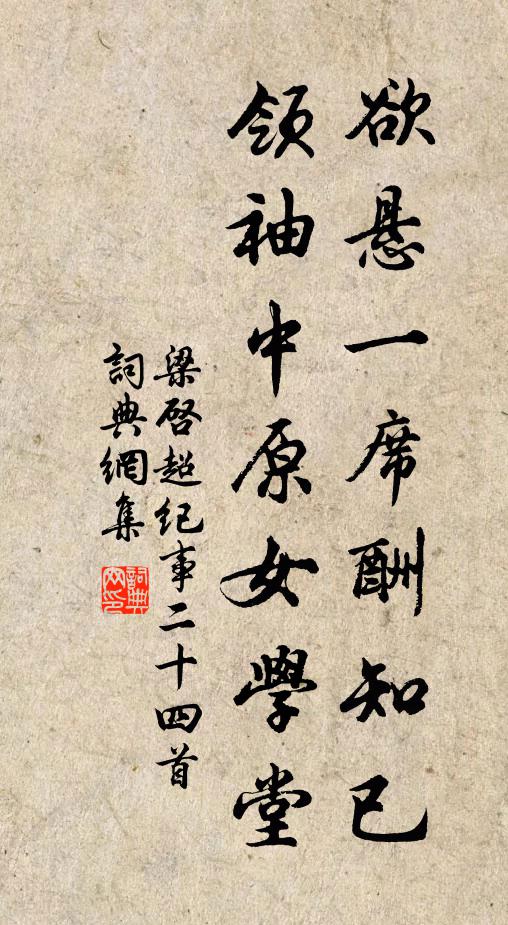 欲悬一席酬知已
领袖中原女學堂
梁啓超纪事二十四首
詞典網集
詞典网印